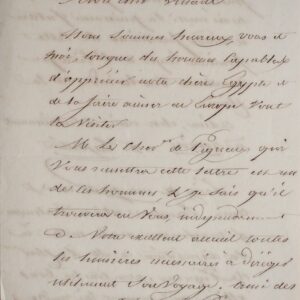 Mon cher
Nous sommes heureux vous et
moi, lorsque des hommes capables
d'apprécier notre chère Egypte et
de la faire aimer en Europe vont
la visiter
M. le Chevr. de qui
vous remettra cette lettre est un
de ces hommes & je sais qu'il
trouvera en vous, indépendamment
de votre excellent accueil toutes
les lumières nécessaires à diriger
utilement son voyage.